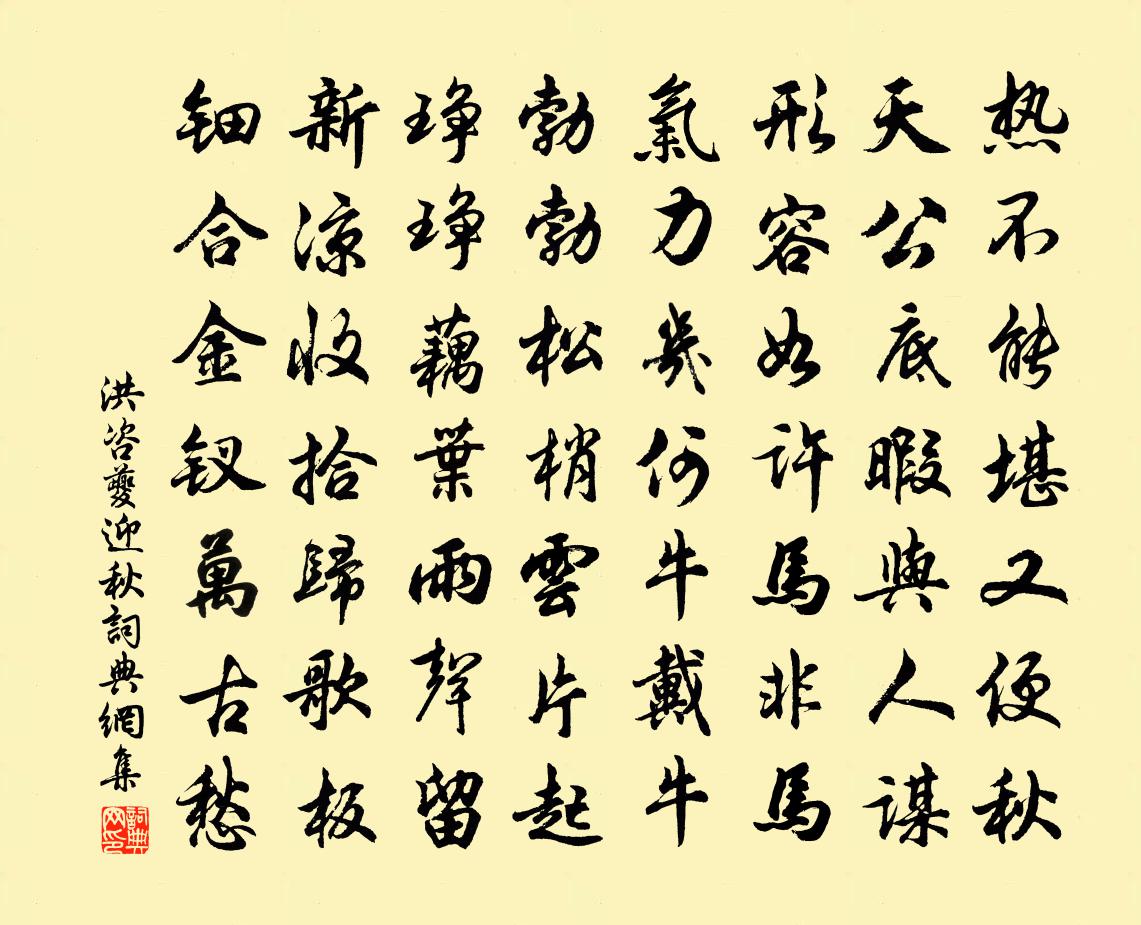 热不能堪又便秋
天公底暇與人謀
形容如許馬非馬
氣力幾何牛戴牛
勃勃松梢雲片起
琤琤藕葉雨聲留
新涼收拾歸歌板
鈿合金釵萬古愁
洪咨夔迎秋詞典網集
詞典網印